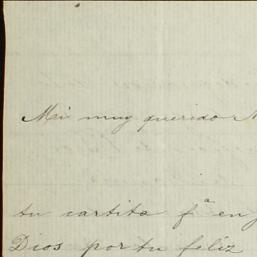 Mi muy querido
tu cartita fª en
Dios por tu feliz